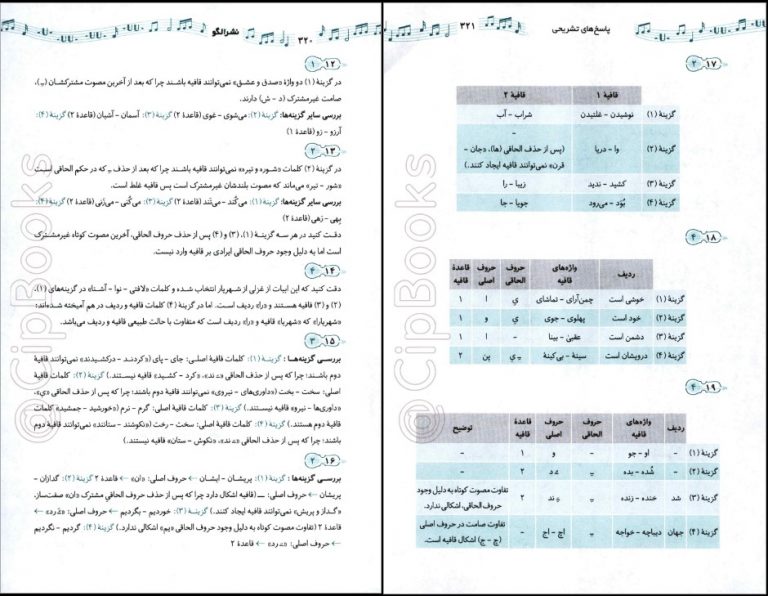 نشرالگو
۳۲۰
۱۲ ۱
در گزینهٔ (۱) دو واژهٔ «صدق و عشق» نمی‌توانند قافیه باشند چرا که بعد از آخرین مصوت مشترکشان (ـِ)،
صامت غیرمشترک (د - ش) دارند.
بررسی سایر گزینه‌ها: گزینهٔ (۲): می‌شوی - غوی (قاعدهٔ ۲) گزینهٔ (۳): آسمان - آشیان (قاعدهٔ ۲) گزینهٔ (۴):
آرزو - زو (قاعدهٔ ۱)
۱۳ ۲
در گزینهٔ (۲) کلمات «شوره و تیره» نمی‌توانند قافیه باشند چرا که بعد از حذف ـه که در حکم الحاقی است
«شور - تیر» می‌ماند که مصوت بلندشان غیرمشترک است پس قافیه غلط است.
بررسی سایر گزینه‌ها: گزینهٔ (۱): کُند - تَند (قاعدهٔ ۲) گزینهٔ (۳): می‌کَنی - می‌زنی (قاعدهٔ ۲) گزینهٔ (۴):
بِهی - زهی (قاعدهٔ ۲)
دقت کنید در هر سه گزینهٔ (۱)، (۳) و (۴) پس از حذف حروف الحاقی، آخرین مصوت کوتاه غیرمشترک
است اما به دلیل وجود حروف الحاقی ایرادی بر قافیه وارد نیست.
۱۴ ۴
دقت کنید که این ابیات از غزلی از شهریار انتخاب شده و کلمات «لافتی - نوا - آشنا» در گزینه‌های (۱)،
(۲) و (۳) قافیه هستند و «را» ردیف است. اما در گزینهٔ (۴) کلمات قافیه و ردیف در هم آمیخته شده‌اند:
«شهریارا» که «شهریا» قافیه و «را» ردیف است که متفاوت با حالت طبیعی قافیه و ردیف می‌باشد.
۱۵ ۳
بررسی گزینه‌ها: گزینهٔ (۱): کلمات قافیهٔ اصلی: جای - پای («کردند - درکشیدند» نمی‌توانند قافیهٔ
دوم باشند؛ چرا که پس از حذف الحاقی «ـَ ند»، «کرد - کشید» قافیه نیستند.) گزینهٔ (۲): کلمات قافیهٔ
اصلی: سخت - بخت («داوری‌های - نیروی» نمی‌توانند قافیهٔ دوم باشند؛ چرا که پس از حذف الحاقی «ی»،
«داوری‌ها - نیرو» قافیه نیستند.) گزینهٔ (۳): کلمات قافیهٔ اصلی: گرم - نرم («خورشید - جمشید» کلمات
قافیهٔ دوم هستند.) گزینهٔ (۴): کلمات قافیهٔ اصلی: سخت - رخت («نکوشند - ستانند» نمی‌توانند قافیهٔ دوم
باشند؛ چرا که پس از حذف الحاقی «ـَ ند»، «نکوش - ستان» قافیه نیستند.)
۱۶ ۲
بررسی گزینه‌ها: گزینهٔ (۱): پریشان - ایشان ← حروف اصلی: «ان» ← قاعدهٔ ۲ گزینهٔ (۲): گدازان -
پریشان ← حروف اصلی: ــ (قافیه اشکال دارد چرا که پس از حذف حروف الحاقی مشترک «ان» صفت‌ساز،
«گداز و پریش» نمی‌توانند قافیه ایجاد کنند.) گزینهٔ (۳): خوردیم - بگردیم ← حروف اصلی: «ـُ رد» ←
قاعدهٔ ۲ (تفاوت مصوت کوتاه به دلیل وجود حروف الحاقی «یم» اشکالی ندارد.) گزینهٔ (۴): گردیم - نگردیم
← حروف اصلی: «ـَ رد» ← قاعدهٔ ۲
@CipBooks
۳۲۱
پاسخ‌های تشریحی
۱۷ ۲
قافیهٔ ۱ قافیهٔ ۲
گزینهٔ (۱) نوشیدن - غلتیدن شراب - آب
گزینهٔ (۲) وا - دریا -
(پس از حذف الحاقی (ها)، «جان -
قرن» نمی‌توانند قافیه ایجاد کنند.)
گزینهٔ (۳) کشید - ندید زیبا - را
گزینهٔ (۴) بُوَد - می‌رود جویا - جا
۱۸ ۴
ردیف واژه‌های قافیه حروف الحاقی حروف اصلی قاعدهٔ قافیه
گزینهٔ (۱) خوشی است چمن‌آرای - تماشای ی ا ۱
گزینهٔ (۲) خود است پهلوی - جوی ی و ۱
گزینهٔ (۳) دشمن است عقبیٰ - بینا - ا ۱
گزینهٔ (۴) درویشان است سینهٔ - بی‌کینهٔ ـِ ی ین ۲
۱۹ ۴
ردیف واژه‌های قافیه حروف الحاقی حروف اصلی قاعدهٔ قافیه توضیح
گزینهٔ (۱) - او - جو - و ۱ -
گزینهٔ (۲) - شُده - بده ـه ـَ د ۲ -
گزینهٔ (۳) شد خنده - زنده ـه ـَ ند ۲ تفاوت مصوت کوتاه به دلیل وجود
حروف الحاقی، اشکالی ندارد.
گزینهٔ (۴) جهان دیباچه - خواجه ـه اچ - اج - تفاوت صامت در حروف اصلی
(چ - ج) اشکال قافیه است.
@CipBooks